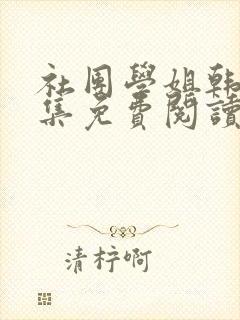 社團學姐韩
集免費閱讀
清梓啊